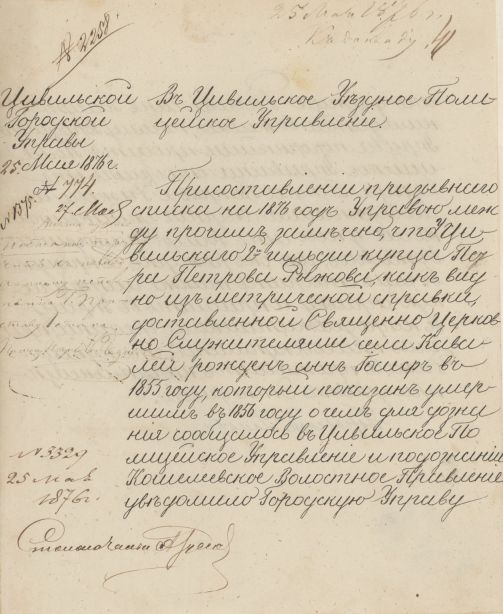 № 2258.
25 Мая 1876 г.
К докладу.
Цивильской
Городской
Управы
25 Мая 1876 г.
№ 774.
№ 1575.
27 Мая
Въ Цивильское Уѣздное Поли-
цейское Управленіе.
При составленіи призывнаго
списка на 1876 годъ Управою, меж-
ду прочимъ замѣчено, что у Ци-
вильскаго 2й гильдіи купца Пет-
ра Петрова Рыжова, какъ вид-
но изъ метрической справки,
доставленной Священно Церков-
но Служителями села
рожденъ сынъ Іосифъ въ
1855 году, который показанъ умер-
шимъ въ 1856 году о чемъ для дозна-
нія сообщалось въ Цивильское По-
лицейское Управленіе и по дознанію
Кошелеевское Волостное Правленіе
увѣдомило Городскую Управу
№ 3329
25 Мая
1876 г.
Столоначальн